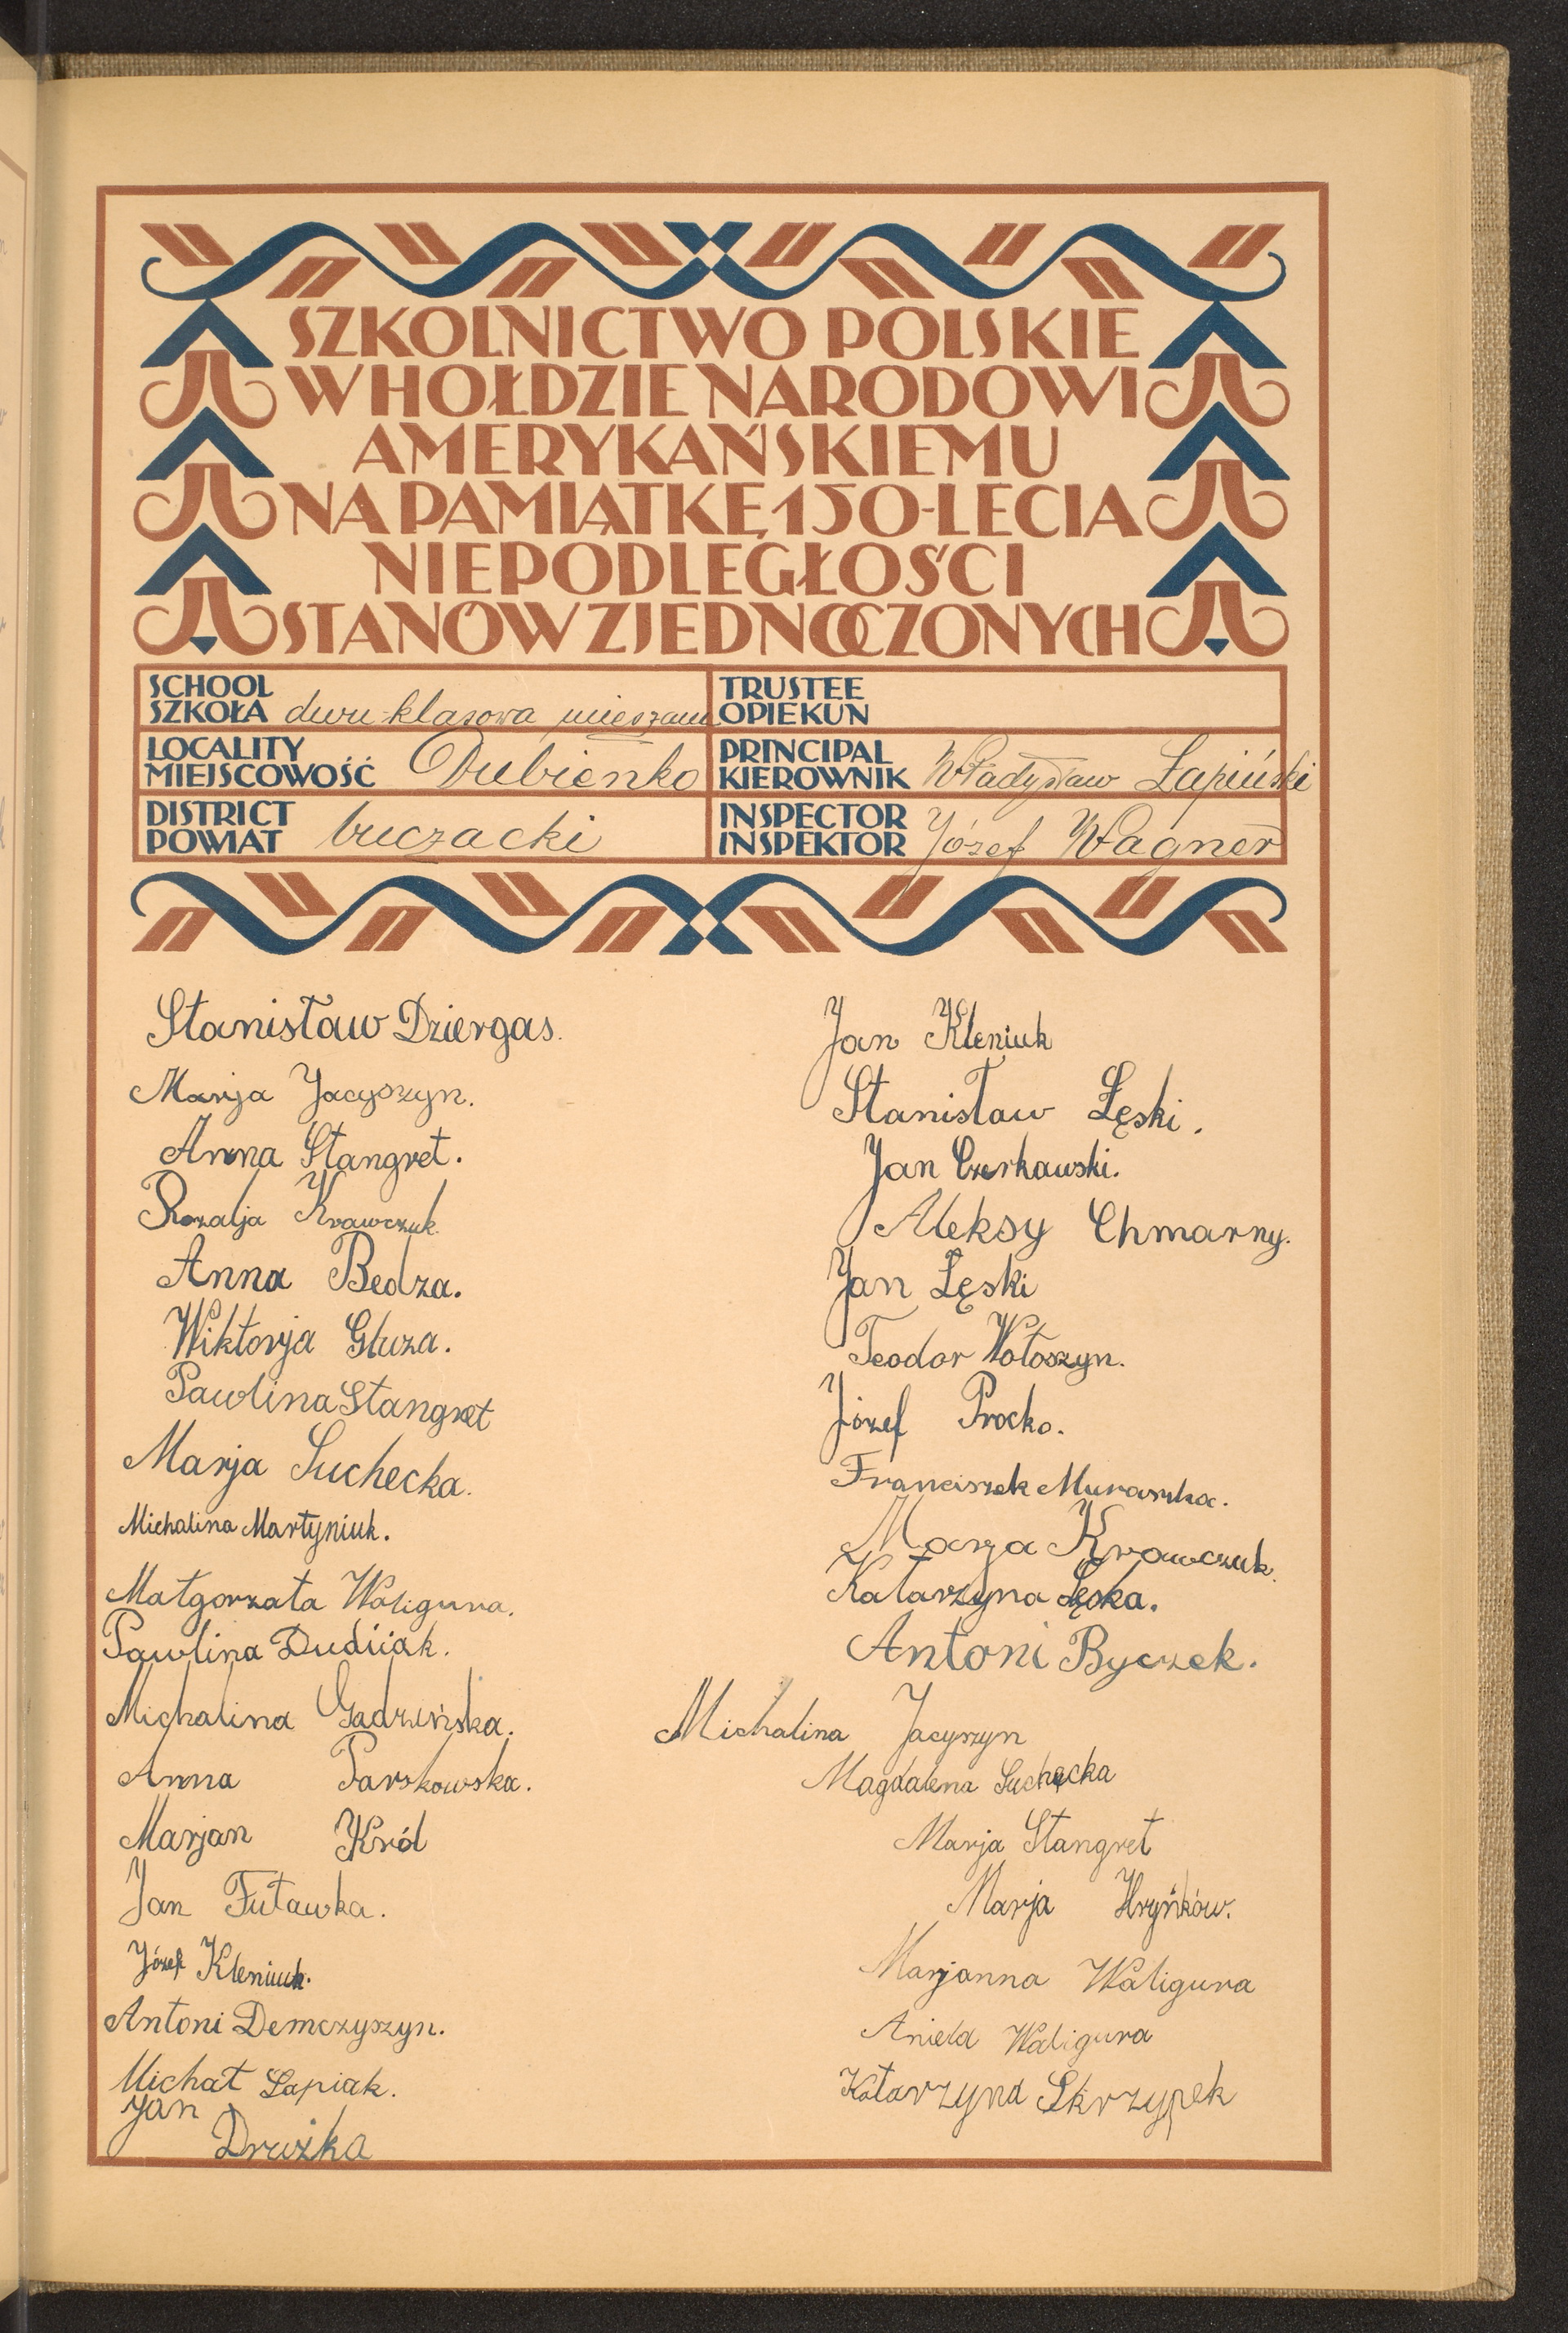 SZKOLNICTWO POLSKIE
W HOŁDZIE NARODOWI
AMERYKAŃSKIEMU
NA PAMIĄTKĘ 150-LECIA
NIEPODLEGŁOŚCI
STANÓW ZJEDNOCZONYCH
SCHOOL
SZKOŁA dwu-klasowa mieszana
TRUSTEE
OPIEKUN
LOCALITY
MIEJSCOWOŚĆ Dubieńko
PRINCIPAL
KIEROWNIK Władysław Łapiński
DISTRICT
POWIAT buczacki
INSPECTOR
INSPEKTOR Józef Wagner
Stanisław Dziergas.
Marja Jacyszyn.
Anna Stangret.
Rozalja Krawczuk.
Anna Bedza.
Wiktorja Głuza.
Pawlina Stangret
Marja Suchecka.
Michalina Martyniuk.
Małgorzata Waligura.
Pawlina Dudiiak.
Michalina Gadzińska.
Anna Parskowska.
Marjan Król
Jan Futawka.
Józef Kleniuk.
Antoni Demczyszyn.
Michał Łapiak.
Jan
Drużka
Jan Kleniuk
Stanisław Łęski.
Jan Czerkawski.
Aleksy Chmarny.
Jan Łęski
Teodor Wołoszyn.
Józef Procko.
Franciszek Muraszka.
Marja Krawczuk.
Katarzyna Łęska.
Antoni Byczek.
Michalina Jacyszyn
Magdalena Suchecka
Marja Stangret
Marja Hryńków.
Marjanna Waligura
Aniela Waligura
Katarzyna Skrzypek